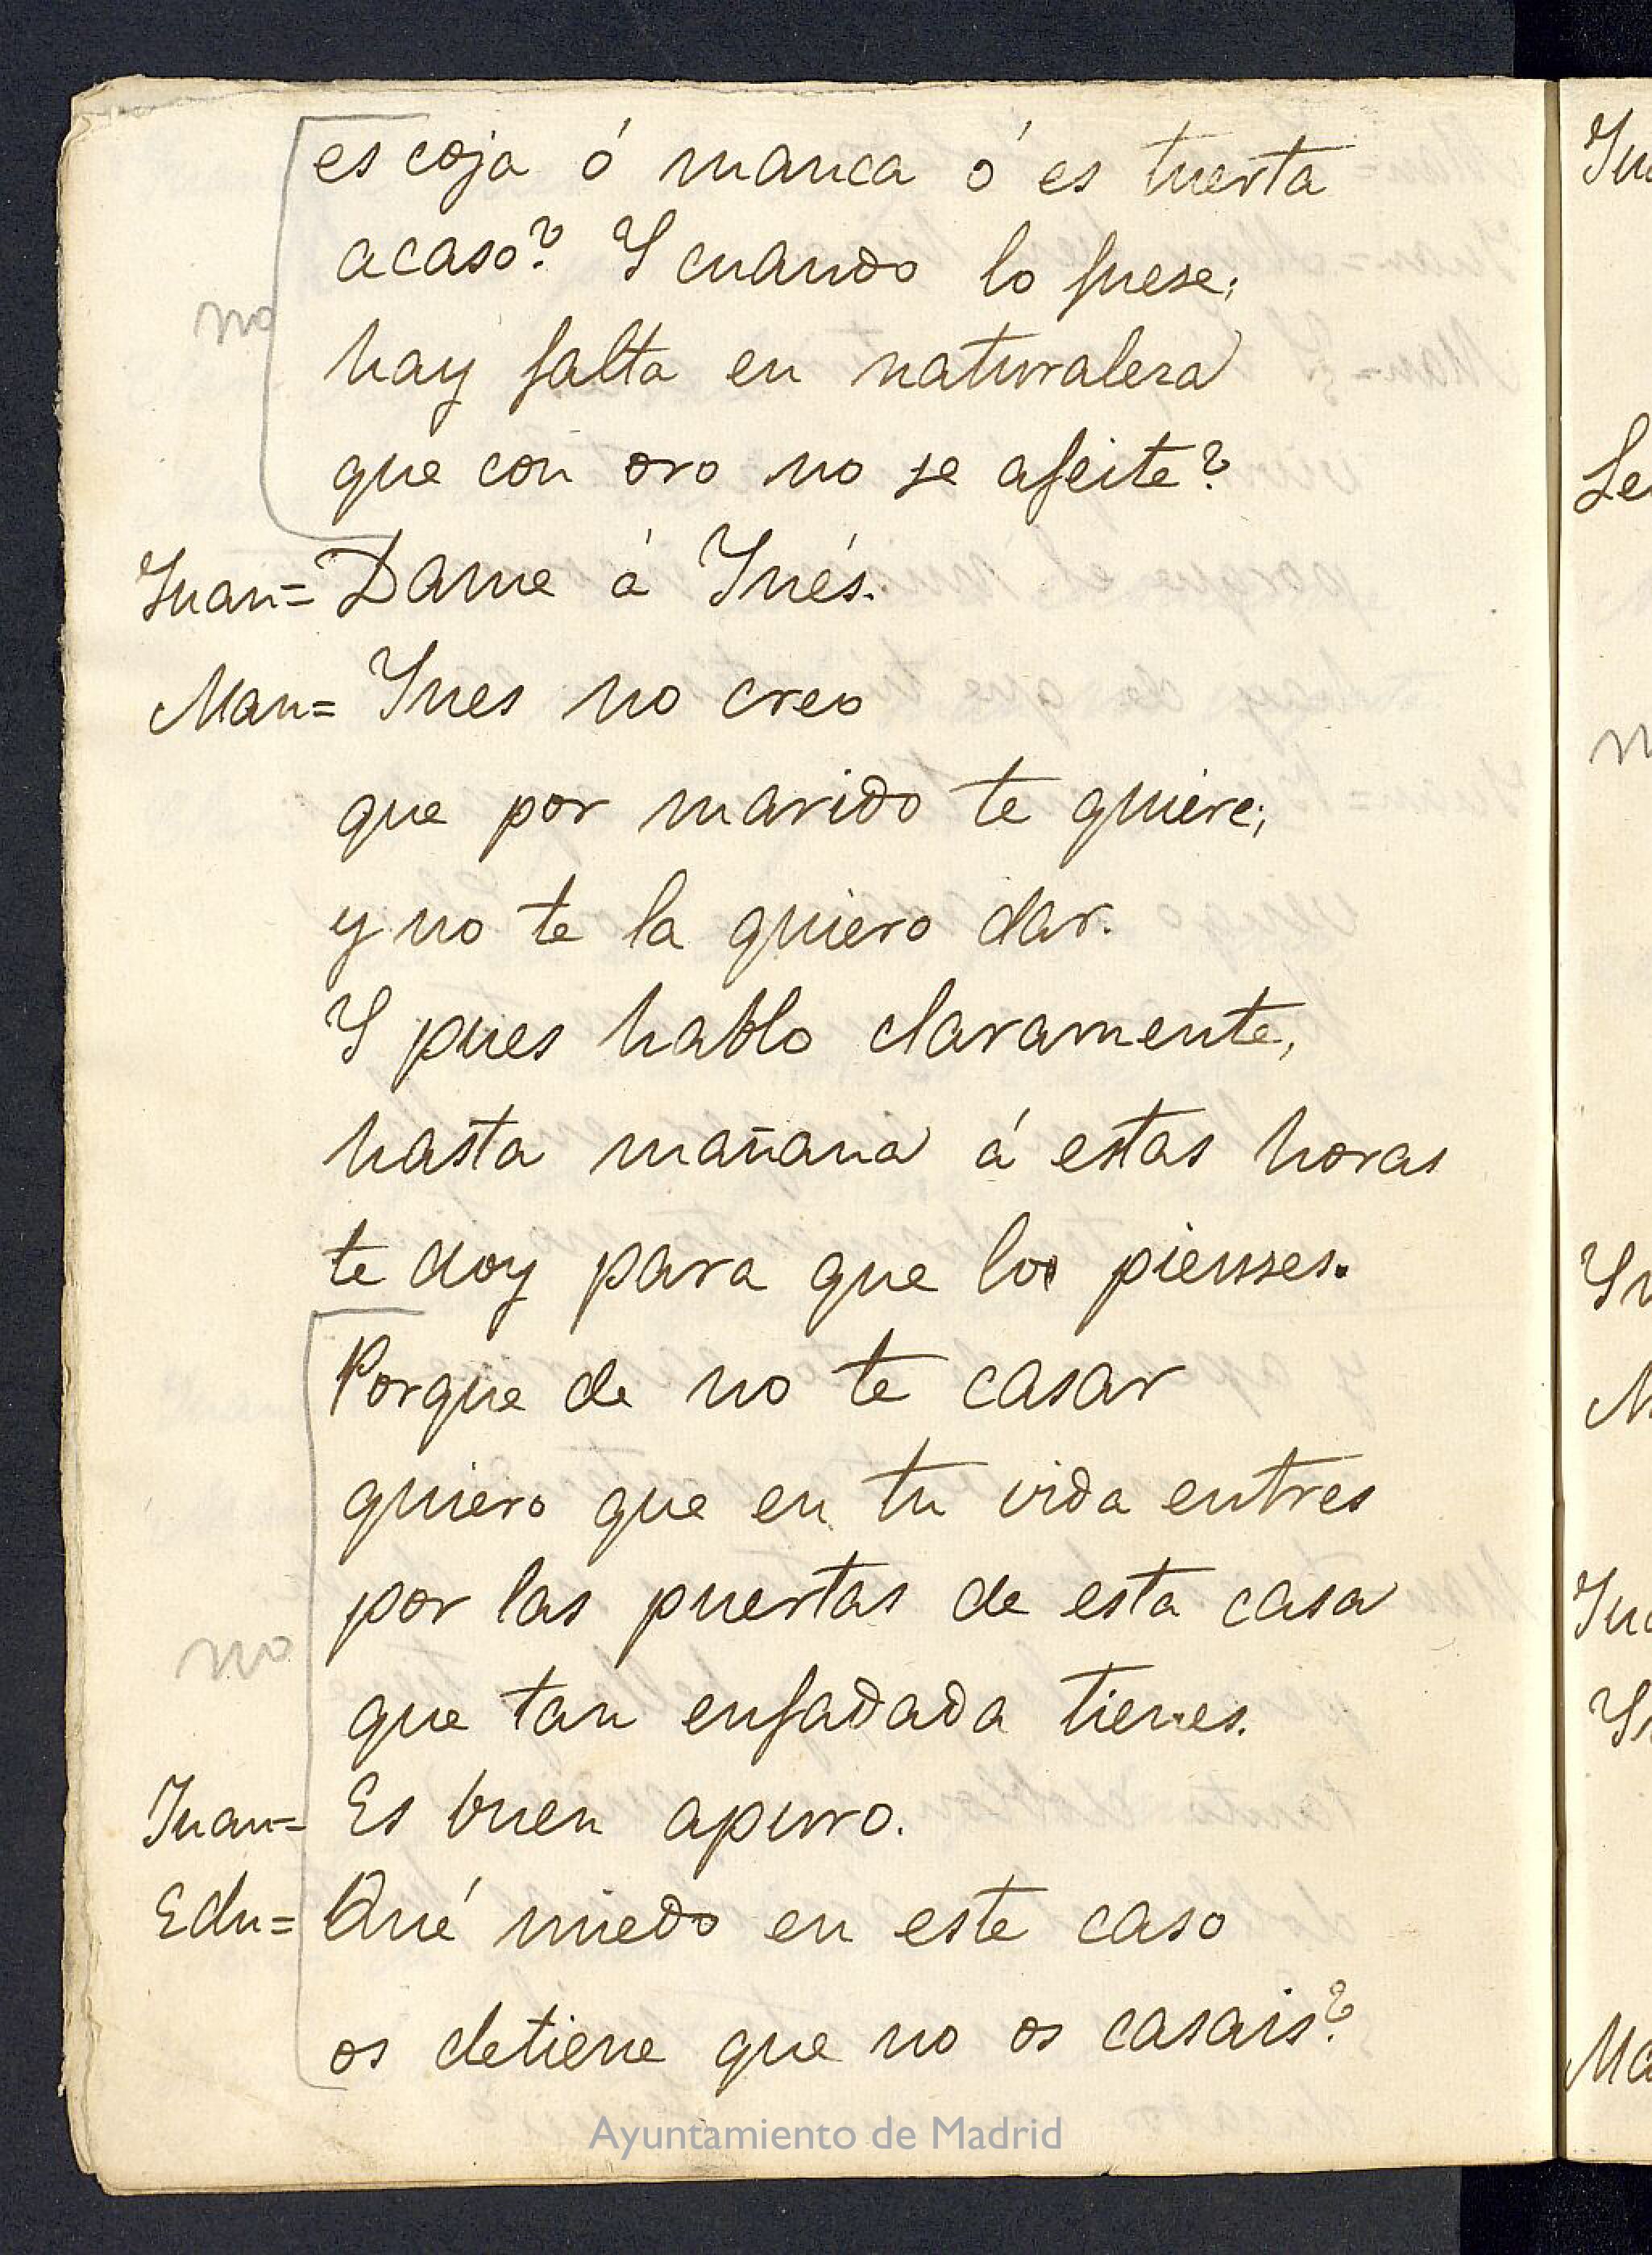 es coja ó manca ó es tuerta
acaso? Y cuando lo fuese;
no
hay falta en naturaleza
que con oro no se afeite?
Juan= Dame á Inés.
Man= Ines no creo
que por marido te quiere;
y no te la quiero dar.
Y pues hablo claramente,
hasta mañana á estas horas
te doy para que los pienses.
Porque de no te casar
quiero que en tu vida entres
por las puertas de esta casa
no
que tan enfadada tienes.
Juan= Es buen apuro.
Edu= Qué miedo en este caso
os detiene que no os casais?
Ayuntamiento de Madrid